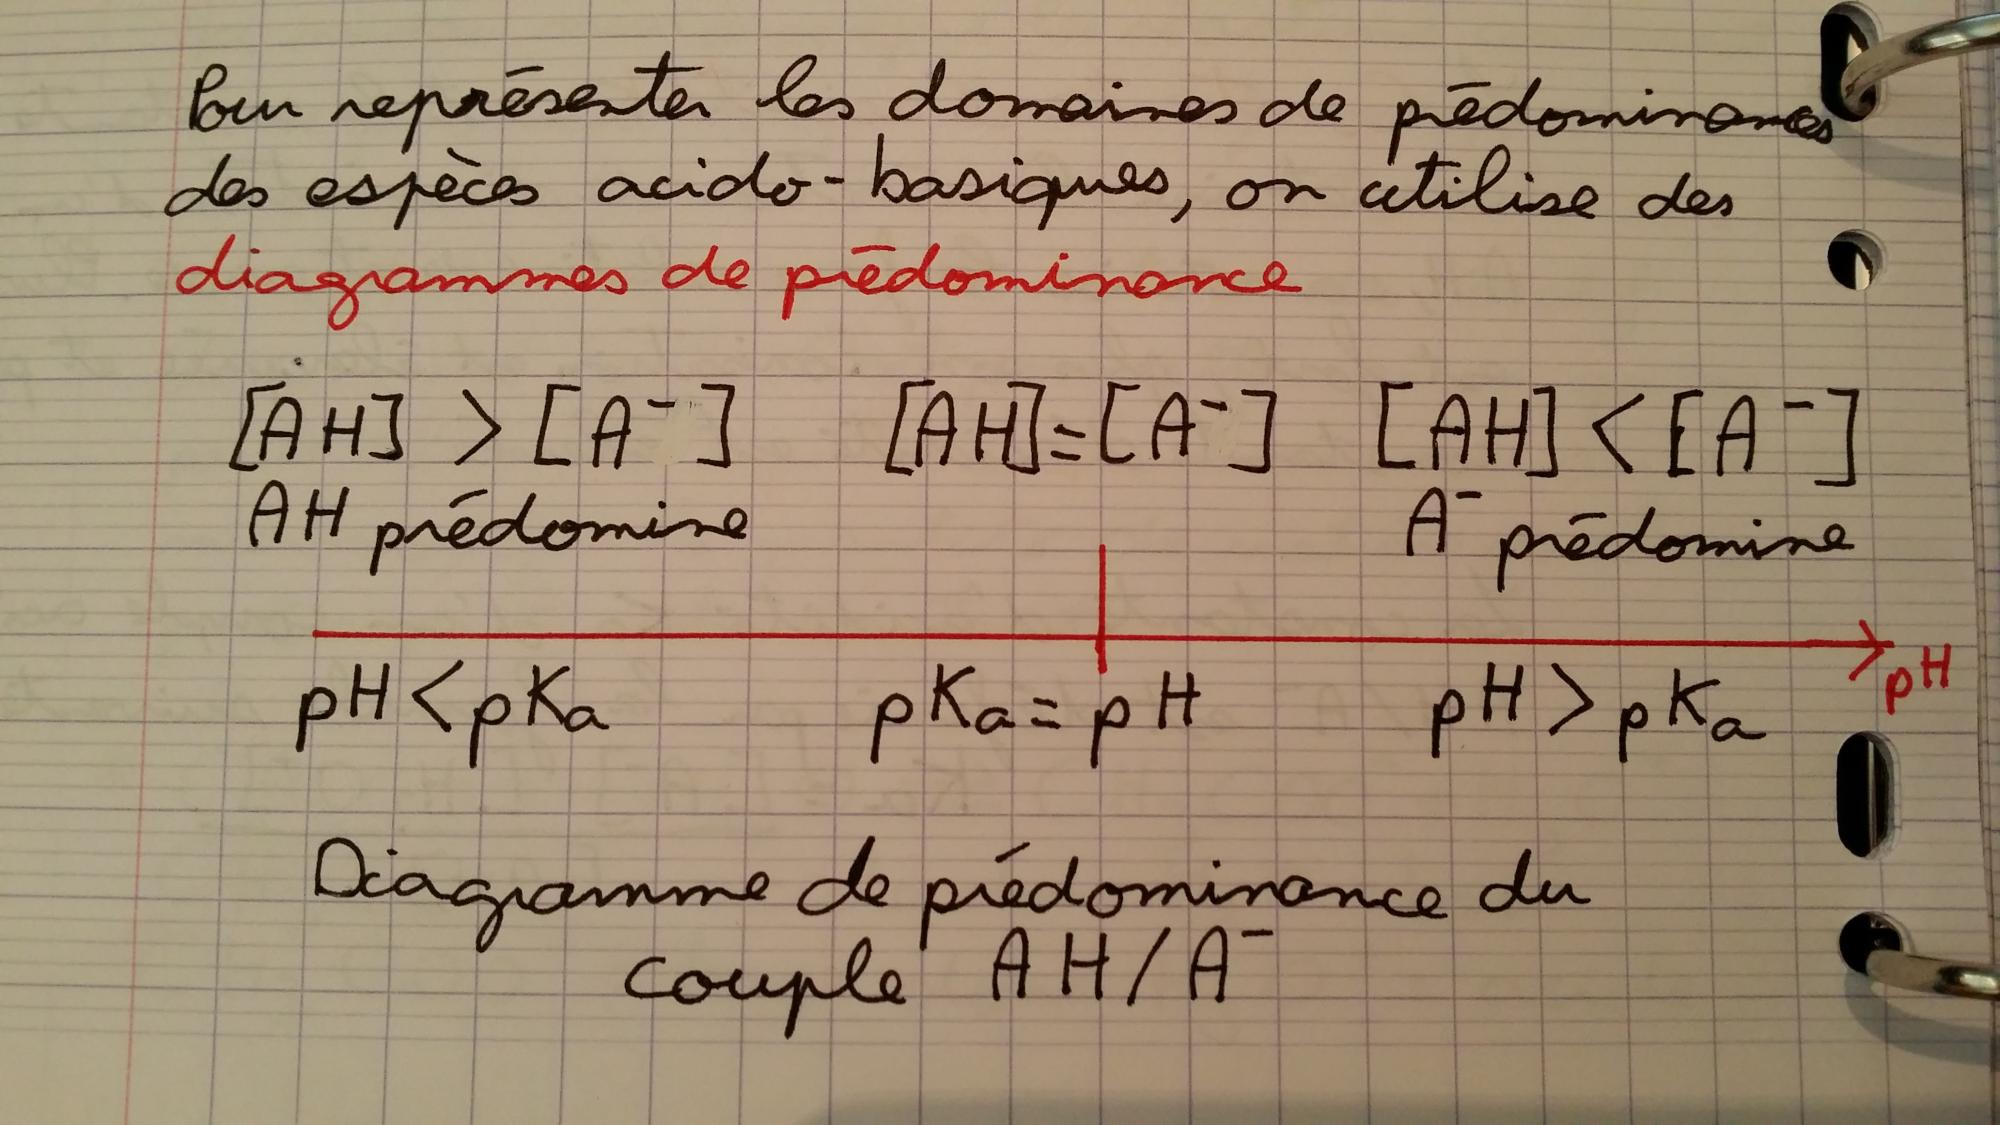 Pour représenter les domaines de prédominances
des espèces acido-basiques, on utilise des
diagrammes de prédominance
[AH] > [A⁻] [AH]=[A⁻] [AH] < [A⁻]
AH prédomine A⁻ prédomine
pH
pH < pKa pKa = pH pH > pKa
Diagramme de prédominance du
couple AH/A⁻